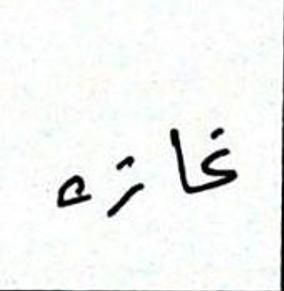 غازه